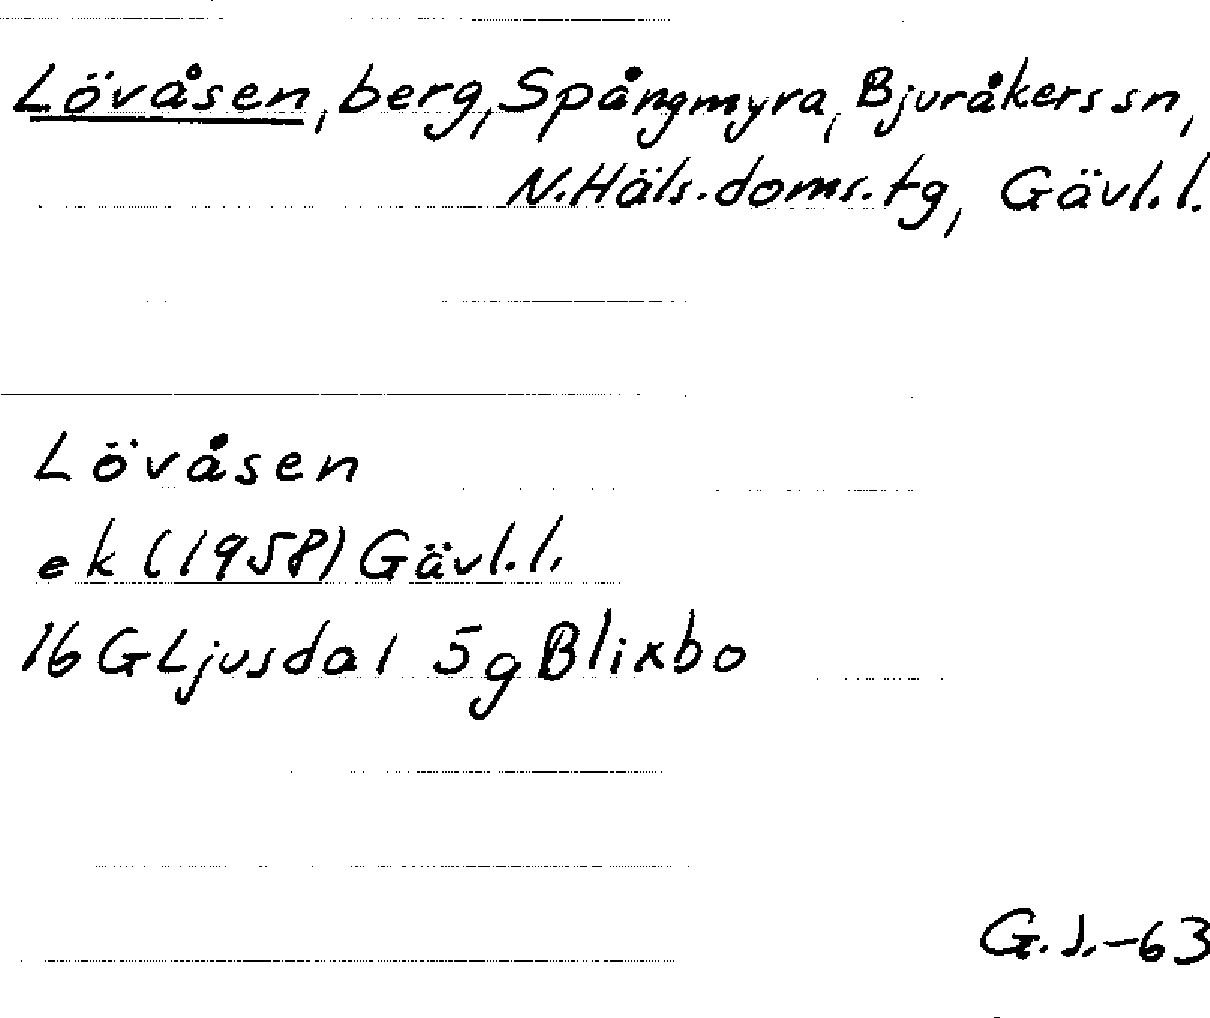 Lövåsen, berg, Spångmyra, Bjuråkers sn,
N. Häls. doms. tg, Gävl. l.
Lövåsen
ek (1958) Gävl. l.
16 G Ljusdal 5g Blixbo
G. J. -63